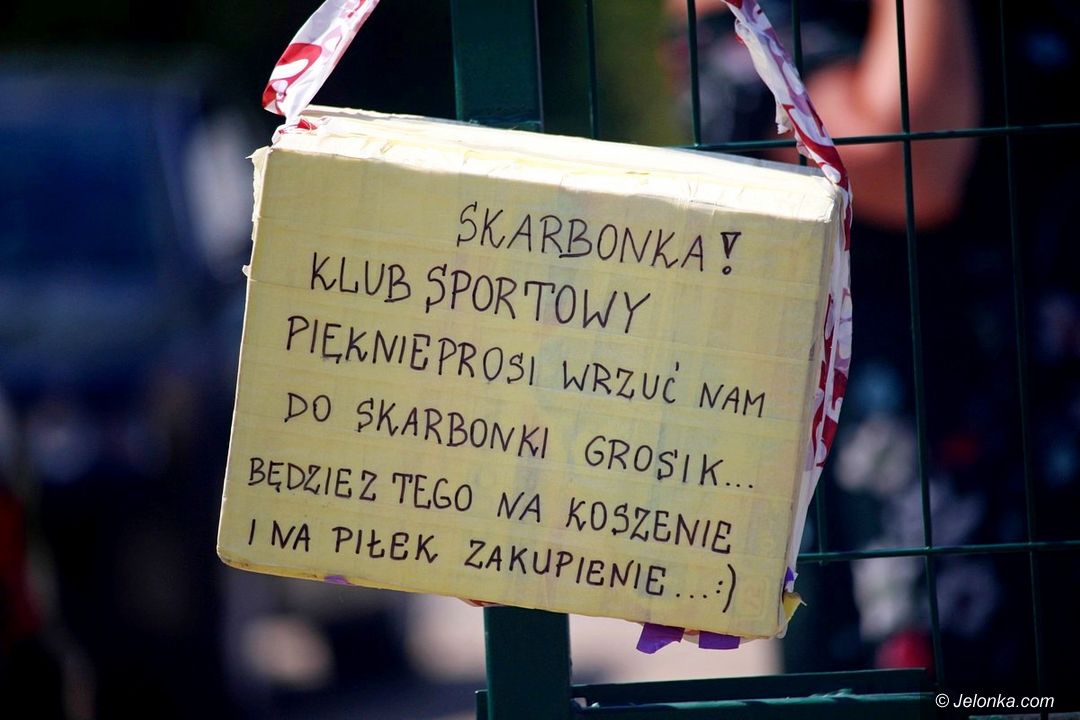 SKARBONKA!
KLUB SPORTOWY
PIĘKNIE PROSI WRZUĆ NAM
DO SKARBONKI GROSIK...
BĘDZIE Z TEGO NA KOSZENIE
I NA PIŁEK ZAKUPIENIE...:)
© Jelonka.com